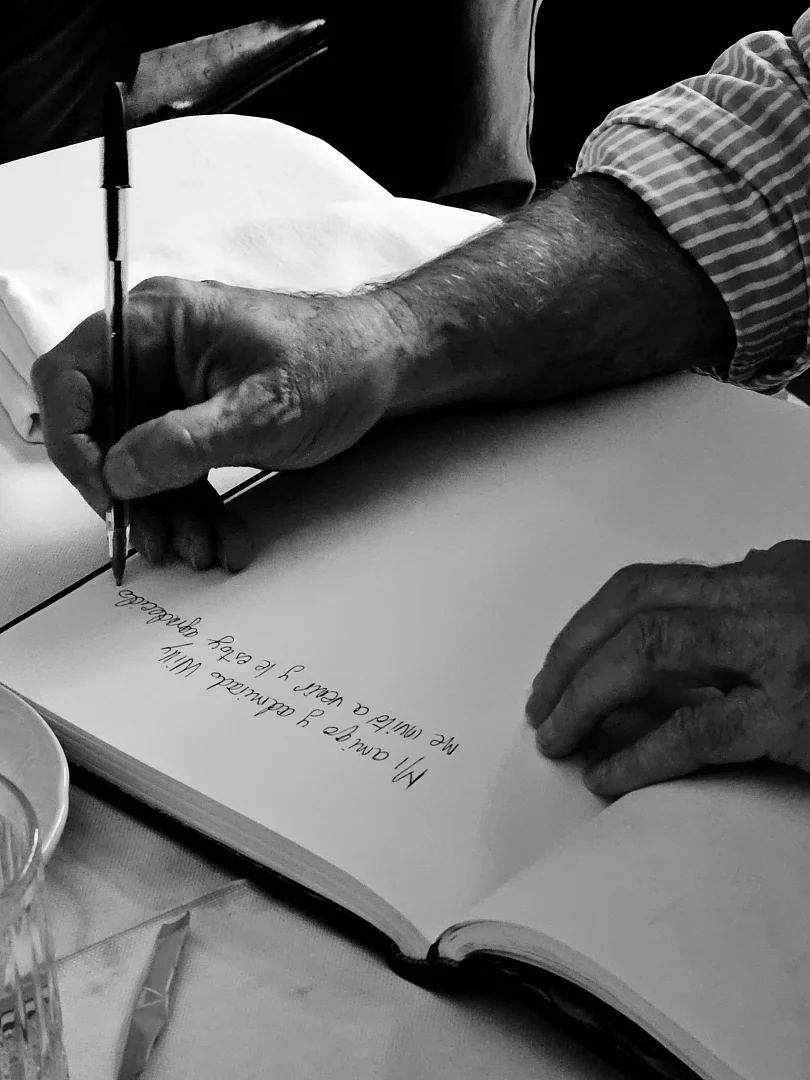 Mi amigo y admirado Willy
me invitó a venir y le estoy agradecido